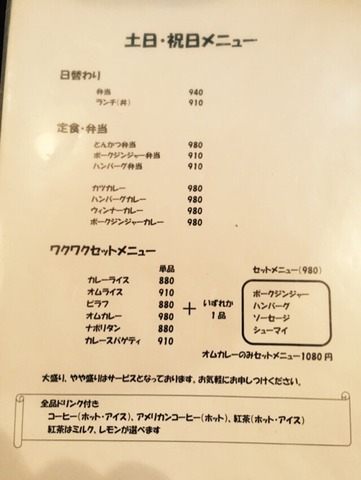 土日・祝日メニュー
日替わり
弁当 940
ランチ(丼) 910
定食・弁当
とんかつ弁当 980
ポークジンジャー弁当 910
ハンバーグ弁当 910
カツカレー 980
ハンバーグカレー 980
ウィンナーカレー 980
ポークジンジャーカレー 980
ワクワクセットメニュー
単品 セットメニュー(980)
カレーライス 880
オムライス 910
ピラフ 880
オムカレー 980
ナポリタン 880
カレースパゲティ 910
+ いずれか
1品
ポークジンジャー
ハンバーグ
ソーセージ
シューマイ
オムカレーのみセットメニュー1080円
大盛り、やや盛りはサービスとなっております。お気軽にお申しつけください。
全品ドリンク付き
コーヒー(ホット・アイス)、アメリカンコーヒー(ホット)、紅茶(ホット・アイス)
紅茶はミルク、レモンが選べます